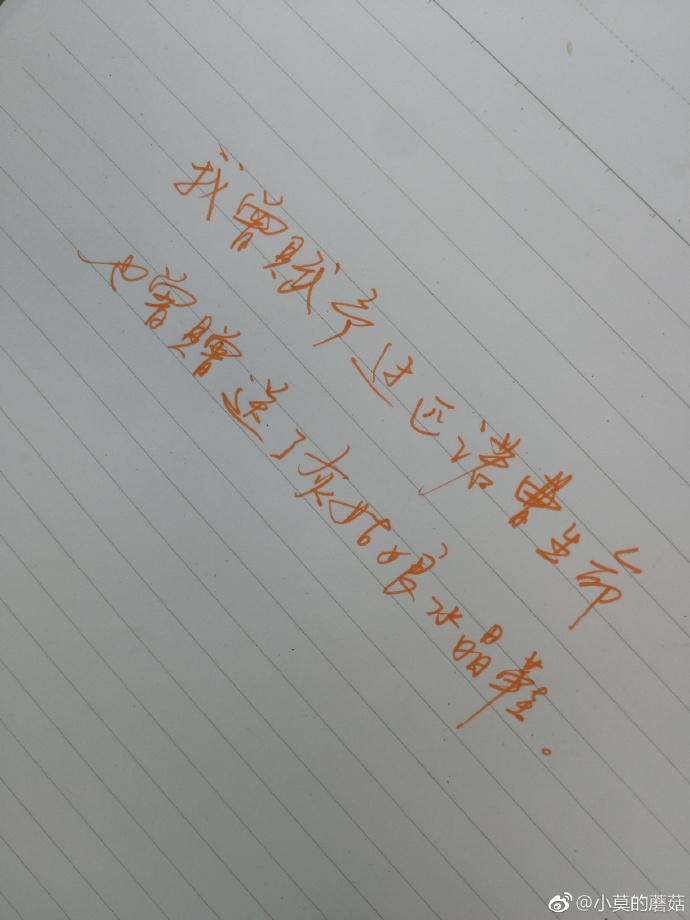 我曾赋予过匹诺曹生命
也曾赠送了灰姑娘水晶鞋。
@小莫的蘑菇